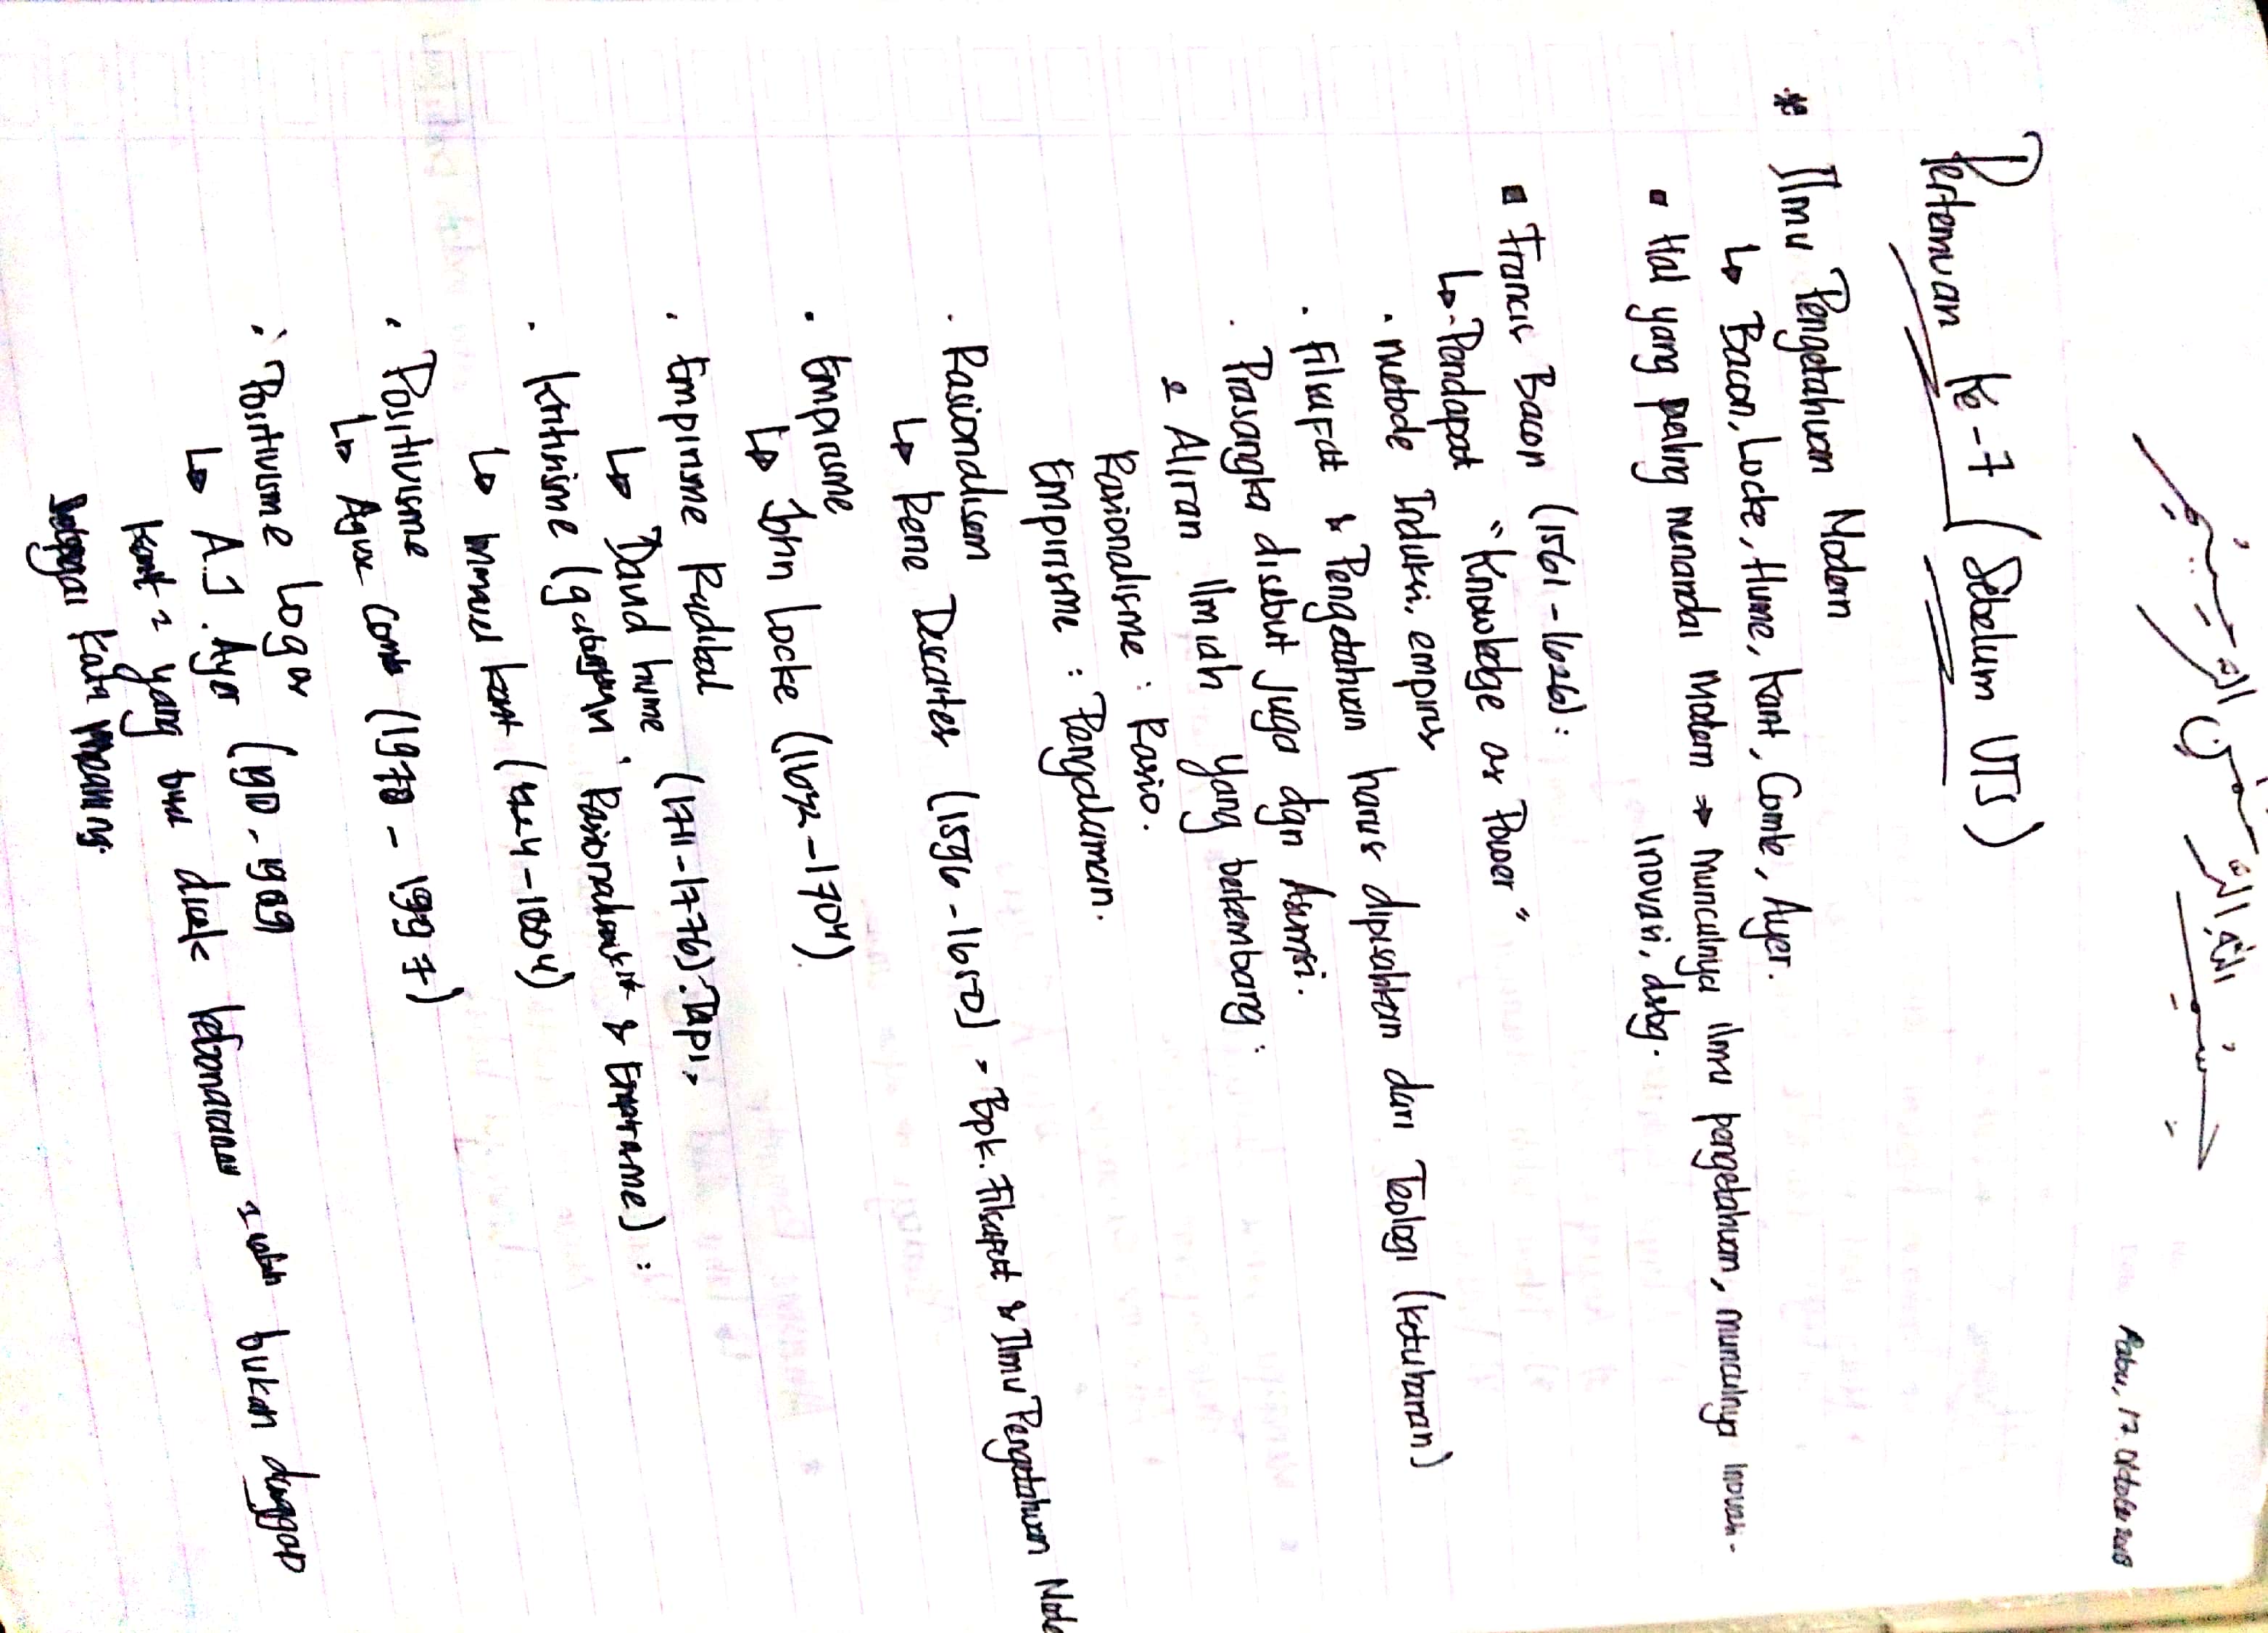 Rabu, 17 Oktober 2018
بسم الله الرحمن الرحيم
Pertemuan Ke-7 (Sebelum UTS)
* Ilmu Pengetahuan Modern
↳ Bacon, Locke, Hume, Kant, Comte, Ayer.
▪ Hal yang paling menandai Modern ⇒ munculnya ilmu pengetahuan, munculnya inovasi-
inovasi, dsbg.
▪ Francis Bacon (1561 - 1626):
↳ Pendapat "Knowledge as Power"
· Metode Induksi, empiris
· Filsafat & Pengetahuan harus dipisahkan dari Teologi (ketuhanan)
· Prasangka disebut juga dgn Asumsi.
Aliran Ilmiah yang berkembang :
Rasionalisme : Rasio.
Empirisme : Pengalaman.
· Rasionalisem
↳ Rene Descartes (1596 - 1650) = Bpk. Filsafat & Ilmu Pengetahuan Mode
· Empirisme
↳ John Locke (1632 - 1704)
· Empirisme Radikal
↳ David hume (1711 - 1776). Tapi,
· Kritisisme (gabungan Rasionalisme & Empirisme) :
↳ Immuel kant (1724 - 1804)
· Positivisme
↳ Agus Comte (1978 - 1997)
· Positivisme Logis
↳ A.J. Ayer (1910 - 1989
yang dicek kebenaran bukan dianggap
Sebagai kata meaning.